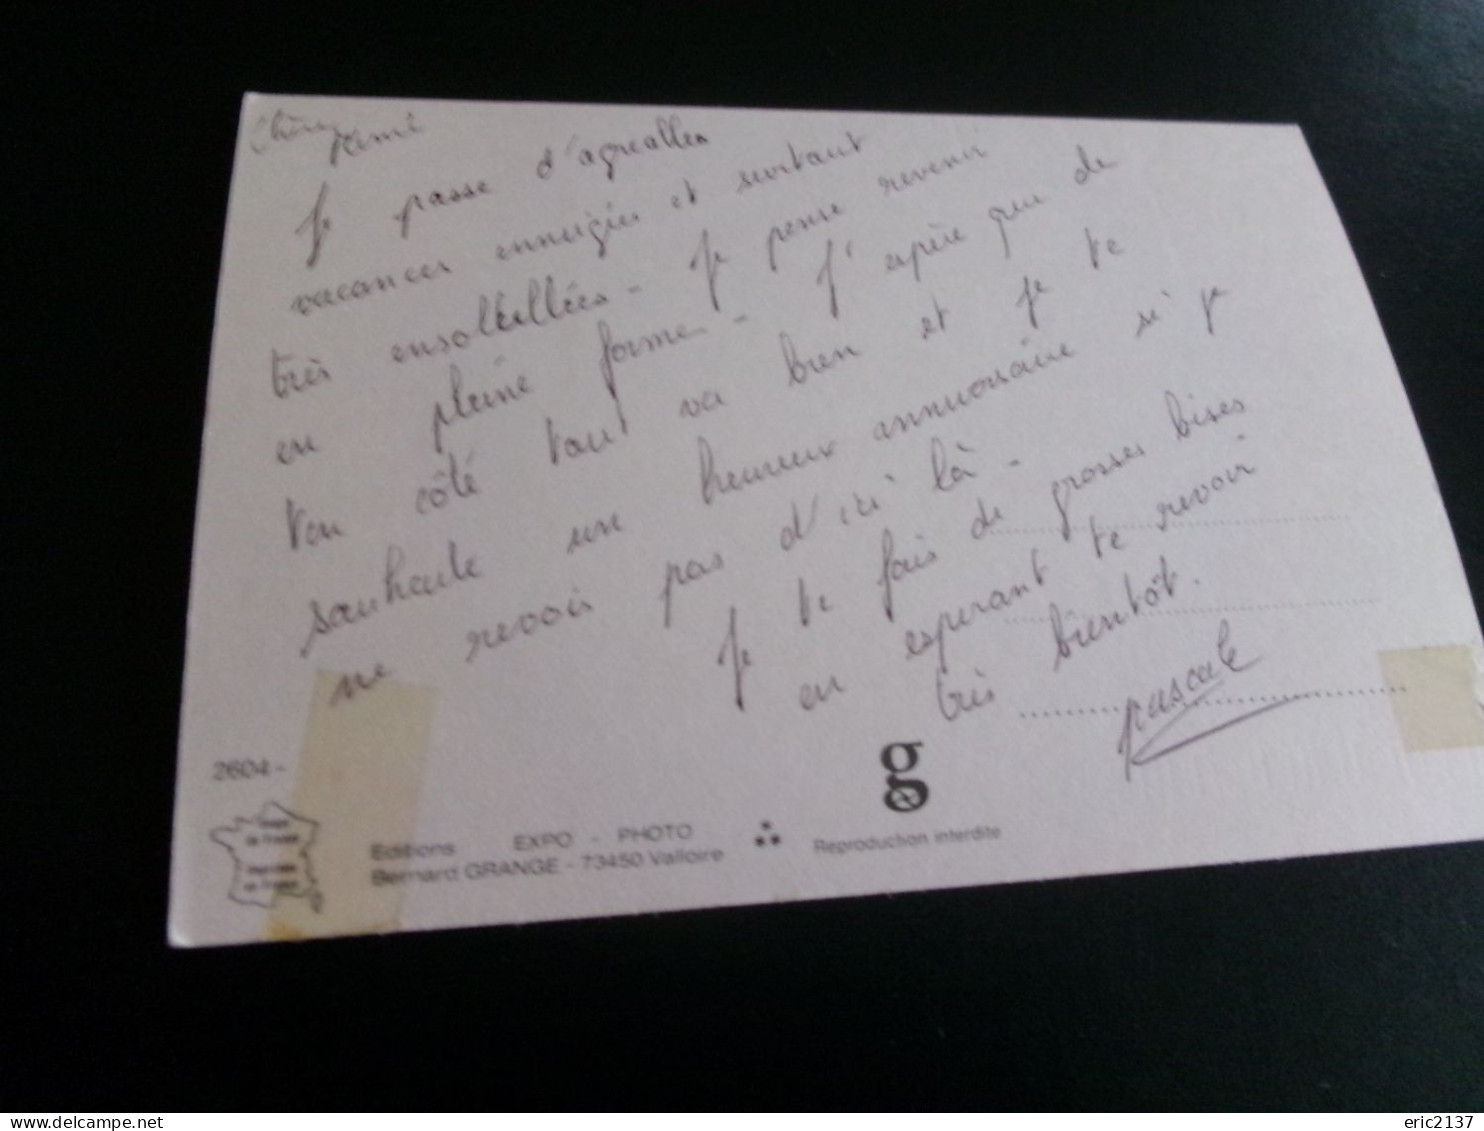 Chère
Mémé
Je passe d'agréables
vacances enneigées et surtout
très ensolleillées - Je pense revenir
en pleine forme - J'espère que de
ton côté tout va bien et je te
souhaite un heureux anniversaire si je
ne revois pas d'ici là -
Je te fais de grosses bises
en esperant te revoir
très bientôt.
pascale
2604 -
g
Editions EXPO - PHOTO
Bernard GRANGE - 73450 Valloire
Reproduction interdite
eric2137